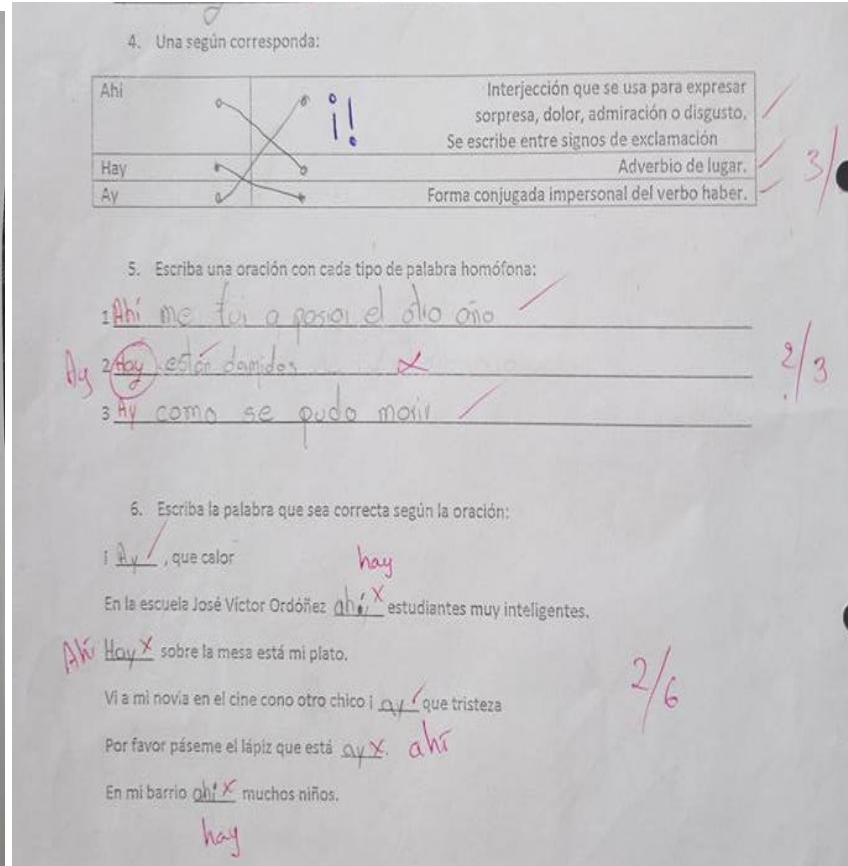 4. Una según corresponda:
Ahí
¡!
Interjección que se usa para expresar
sorpresa, dolor, admiración o disgusto.
Se escribe entre signos de exclamación
Hay
Adverbio de lugar.
3/
Ay
Forma conjugada impersonal del verbo haber.
5. Escriba una oración con cada tipo de palabra homófona:
1 Ahí me fui a pasiar el otro año
Ay 2 Hay están
2/3
3 Ay como se pudo morir
6. Escriba la palabra que sea correcta según la oración:
¡ Ay , que calor
hay
En la escuela José Víctor Ordóñez ahí x estudiantes muy inteligentes.
Ahí Hay x sobre la mesa está mi plato.
2/6
Vi a mi novia en el cine cono otro chico ¡ ay que tristeza
Por favor páseme el lápiz que está ay x. ahí
En mi barrio ahí x muchos niños.
hay